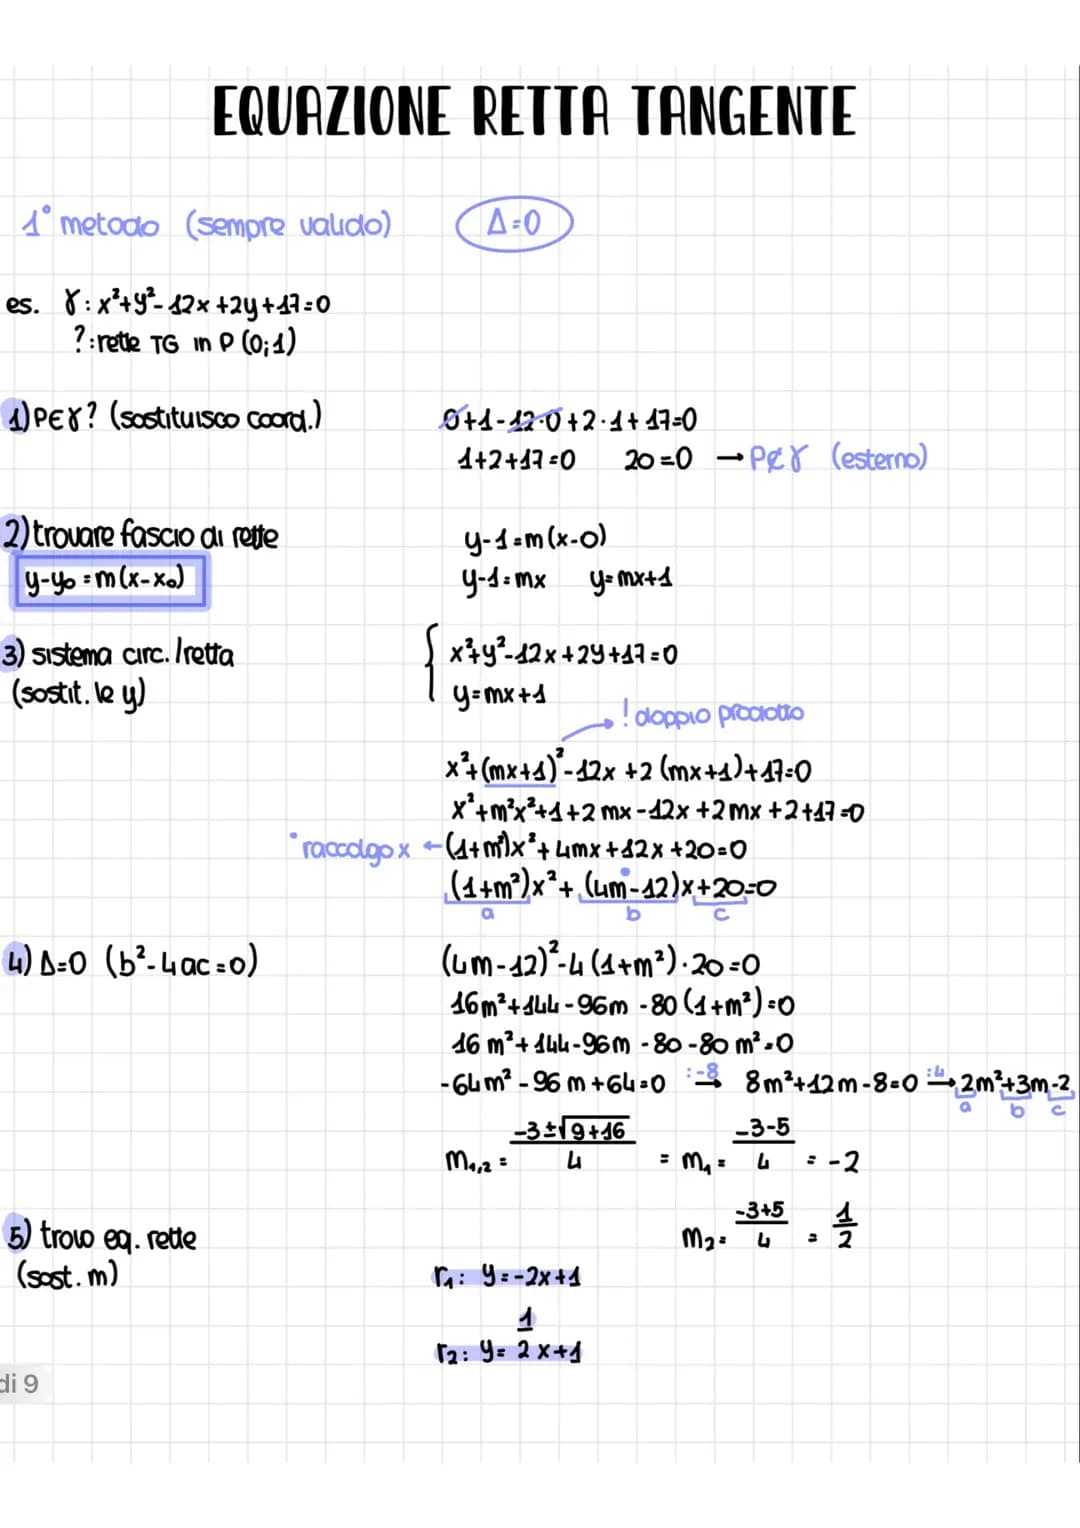 EQUAZIONE RETTA TANGENTE
1° metodo (sempre valido) Δ=0
es. γ: x²+y²-12x+2y+17=0
?: rette TG in P (0;1)
1) P∈γ? (sostituisco coord.) 0+1-12·0+2·1+17=0
1+2+17=0 20=0 → P∉γ (esterno)
2) trovare fascio di rette y-1=m(x-0)
y-y₀=m(x-x₀) y-1=mx y=mx+1
3) sistema circ./retta x²+y²-12x+2y+17=0
(sostit. le y) y=mx+1
! doppio prodotto
x²+(mx+1)²-12x+2(mx+1)+17=0
x²+m²x²+1+2mx-12x+2mx+2+17=0
°raccolgo x ← (1+m²)x²+4mx+12x+20=0
(1+m²)x²+(4m-12)x+20=0
a b c
4) Δ=0 (b²-4ac=0) (4m-12)²-4(1+m²)·20=0
16m²+144-96m-80(1+m²)=0
16m²+144-96m-80-80m²=0
-64m²-96m+64=0 :-8→ 8m²+12m-8=0 :4→ 2m²+3m-2
a b c
m₁,₂= -3±√9+16/4 = m₁= -3-5/4 = -2
m₂= -3+5/4 = 1/2
5) trovo eq. rette
(sost. m) r₁: y=-2x+1
r₂: y=1/2x+1
di 9